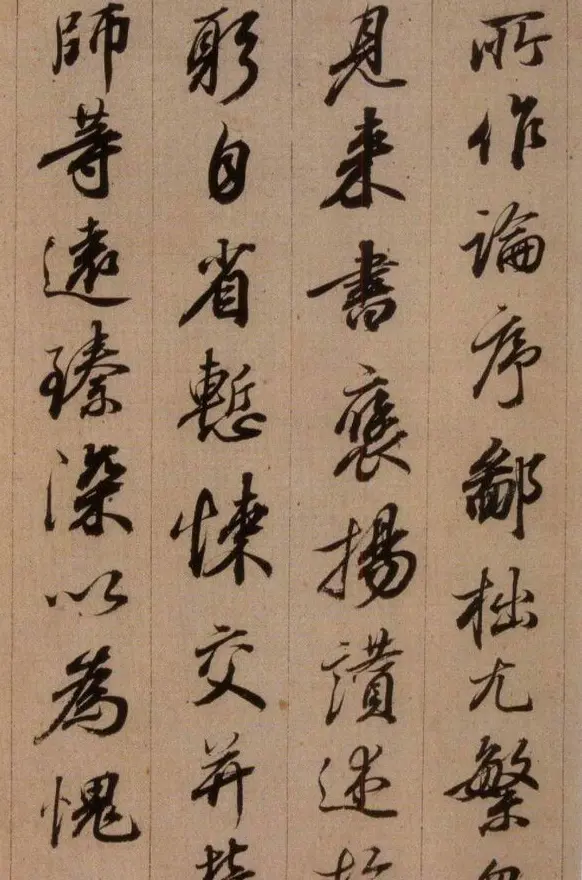 所作論序鄙拙尤繁
見来書褒揚讚述
躬自省慙悚交并
師等遠臻深以為愧